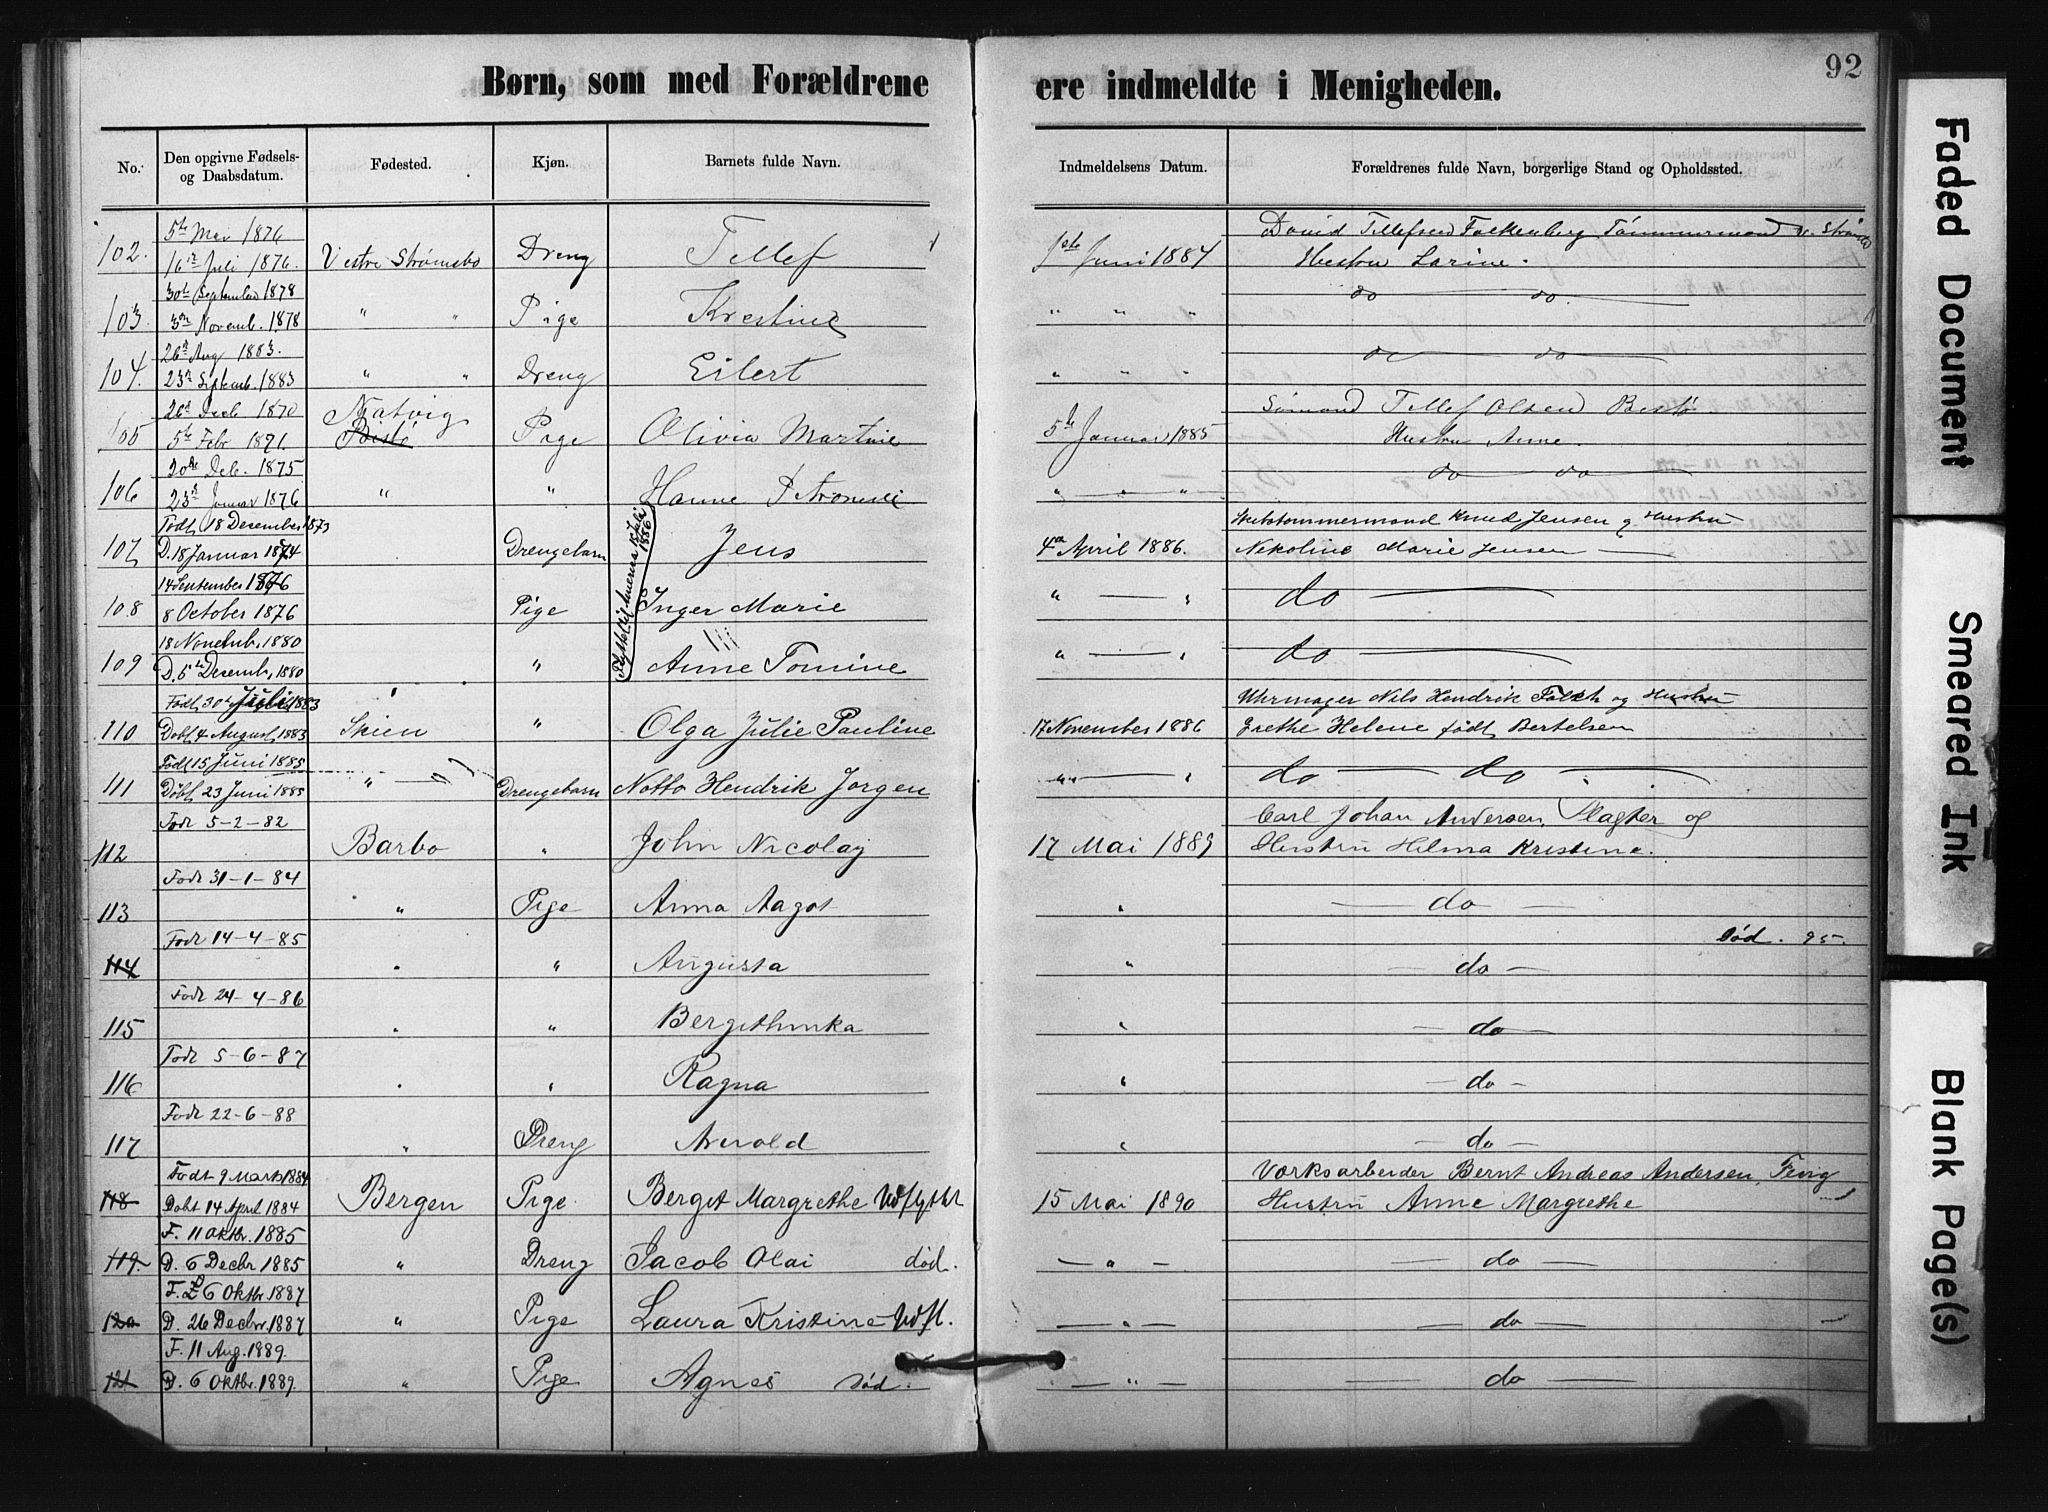 92
Børn, som med Forældrene ere indmeldte i Menigheden.
No. Den opgivne Fødsels- og Daabsdatum. Fødested. Kjøn. Barnets fulde Navn. Indmeldelsens Datum. Forældrenes fulde Navn, borgerlige Stand og Opholdssted.
5te Mai 1876 David Tellefsen Falkenberg Tømmermand V. Strømsbo
102. 16de Juli 1876. Vestre Strømsbo Dreng Tellef 1ste Juni 1884 Hustru Larine.
30te September 1878 do do
103. 3die Novemb. 1878 " " Pige Krestine " " "
26de Aug 1883. do do
104. 23de Septemb. 1883 " " Dreng Eilert " " "
26de Decb 1870 Natvig Sømand Tellef Olsen Bistø
105 5te Febr 1871. Bistø Pige Olivia Martine 5te Januar 1885 Hustru Anne.
20de Deb. 1875 do do
106 23de Januar 1876 " " Hanne Petronelle " "
Født 18 Desember 1873 Skibstømmermand Knud Jensen og Hustru
107 D. 18 Januar 1874 Drengebarn Jens 4de April 1886. Nikoline Marie Jensen
Flyttet til Amerika Juli 1886
14 September 1876
108 8 October 1876 Pige Inger Marie " " do
18 Novemb. 1880
109 D. 5te Desemb. 1880 " Anne Tomine " " do
Født 30te Juli 1883 Uhrmager Nils Hendrik Falkh og Hustru
110 Døbt 4 August 1883 Skien " Olga Julie Pauline 17 November 1886 Grethe Helene født Bertelsen
Født 15 Juni 1885
111 Døbt 23 Juni 1885 " Drengebarn Notto Hendrik Jørgen " " do do
Født 5-2-82 Carl Johan Andersen, Slagter og
112 Barbo " John Nicolay 17 Mai 1889 Hustru Helma Kristine.
Født 31-1-84
113 " Pige Anna Aagot " do
Født 14-4-85 Død. 95.
114 " " Augusta " do
Født 24-4-86
115 " " Bergithinka " do
Født 5-6-87
116 " " Ragna " do
Født 22-6-88
117 " Dreng Arvold " do
Født 9 Marts 1884 Værksarbeider Bernt Andreas Andersen, Fevig
118 Døbt 14 April 1884 Bergen Pige Berget Margrethe Udflyttet 15 Mai 1890 Hustru Anne Margrethe
F. 11 Oktbr. 1885
119. D. 6 Decbr 1885 " Dreng Jacob Olai død. " do
F. 26 Oktbr. 1887
120 D. 26 Decbr. 1887 " Pige Laura Kristine Udfl. " do
F. 11 Aug. 1889.
121 D. 6 Oktbr. 1889. " Pige Agnes død. " do
Faded Document
Smeared Ink
Blank Page(s)